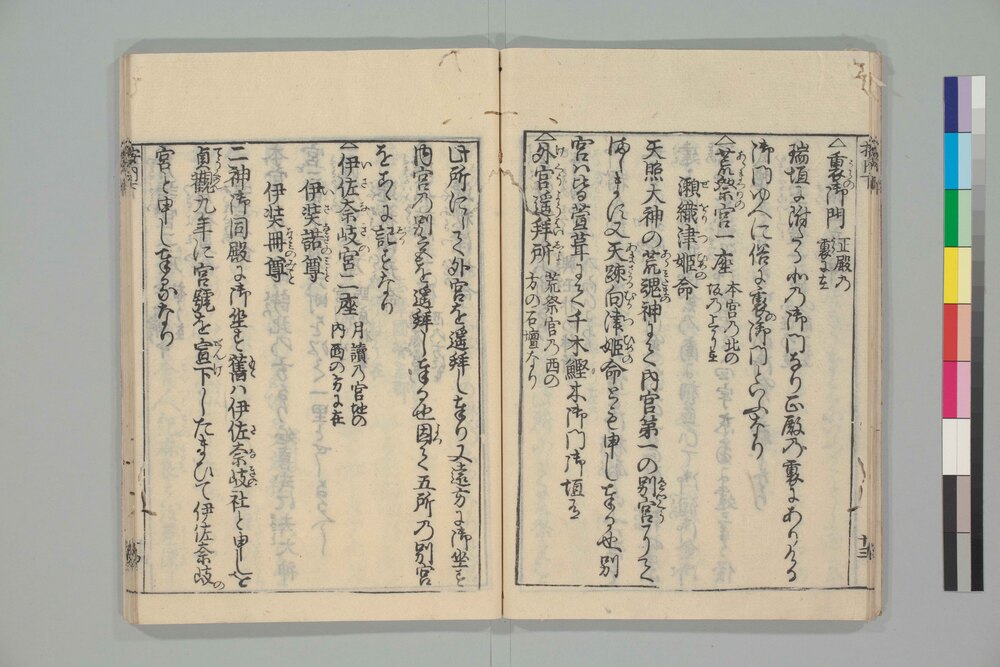 △裏御門 正殿の裏に在
瑞垣に附たる北の御門なり正殿の裏にありける
御門ゆへに俗に裏御門といふなり
△荒祭宮一座 本宮の北の坂の上に在
瀬織津姫命
天照大神の荒魂神にて内宮第一の別宮にして
まします又天疎向津姫命とも申し奉る也別
宮は皆萱葺にて千木鰹木御門御垣有
△外宮遥拝所 荒祭宮の西の方の石壇なり
此所にして外宮を遥拝し奉り又遠方に御坐す
内宮の別宮を遥拝し奉る也因て五所の別宮
をこゝに記すなり
△伊佐奈岐宮二座 月讀の宮地の内西の方に在
伊弉諾尊
伊弉冊尊
二神御同殿に御坐す舊は伊佐奈岐社と申しを
貞觀九年に宮號を宣下したまひて伊佐奈岐の
宮と申し奉るなり